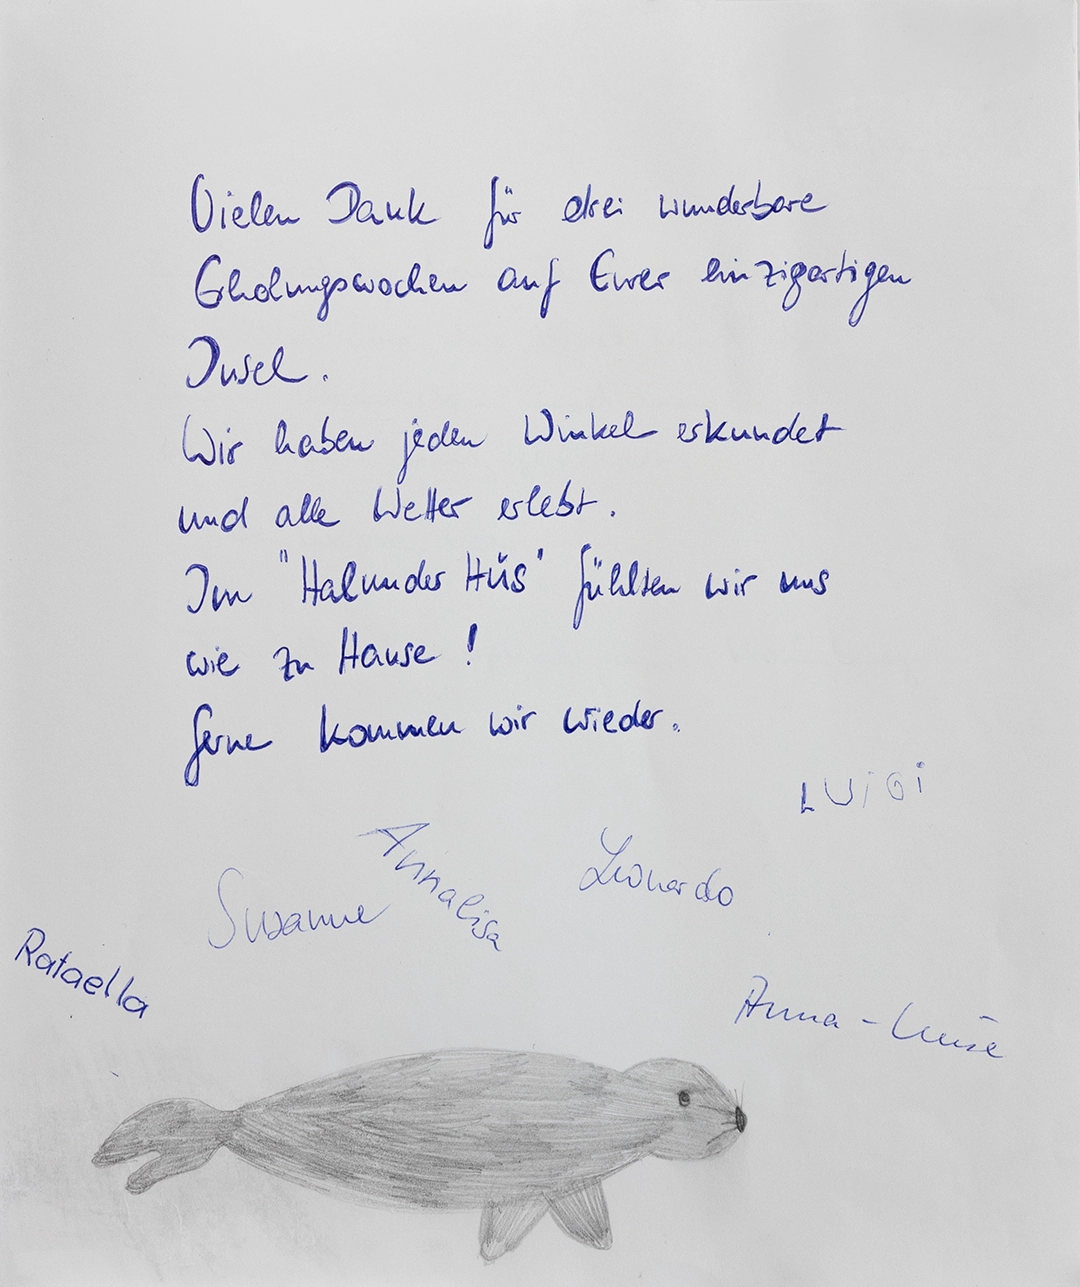 Vielen Dank für drei wunderbare
Erholungswochen auf Eurer einzigartigen
Insel.
Wir haben jeden Winkel erkundet
und alle Wetter erlebt.
Im "Halunder Hüs" fühlten wir uns
wie zu Hause!
Gerne kommen wir wieder.
LUiGi
Annalisa
Leonardo
Susanne
Rafaella
Anna-Luise